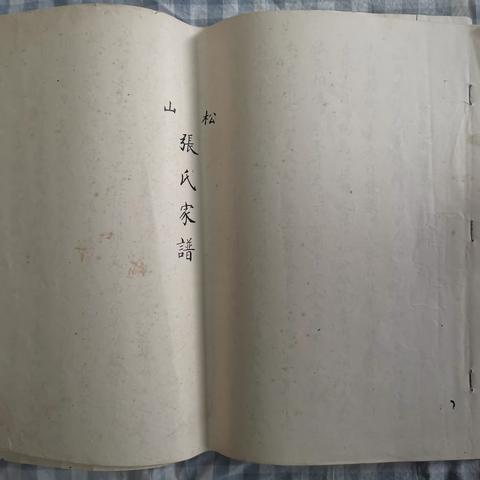 松山
張氏家譜